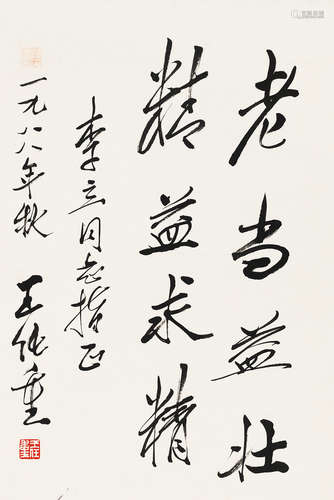 老当益壮
精益求精
李立同志指正
一九八八年秋 王任重